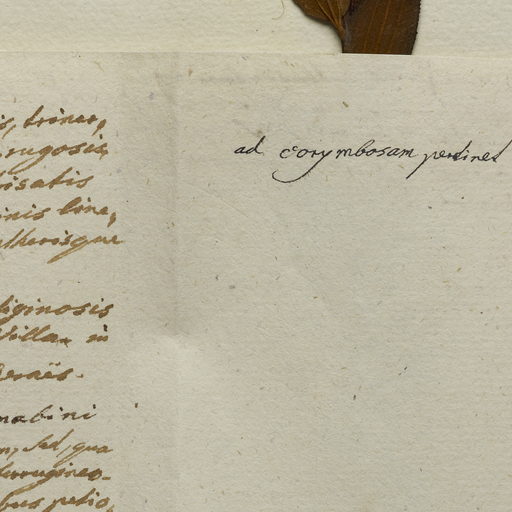 is, triner,
rugosis
isatis
inis line,
atherisque
liginosis
Villa in
Geraës.
mabini
m, sed, qua
ferrugineo-
bus petio,
ad corymbosam pertinet